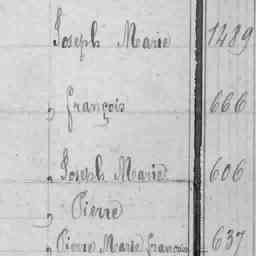 Joseph Marie 1489
„ François 666
„ Joseph Marie 606
„ Pierre
„ Pierre Marie François 637